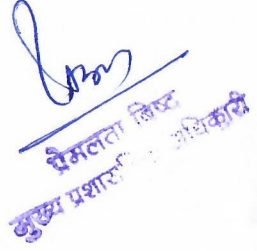 प्रेमलता बिष्ट
मुख्य प्रशास अधिकारी